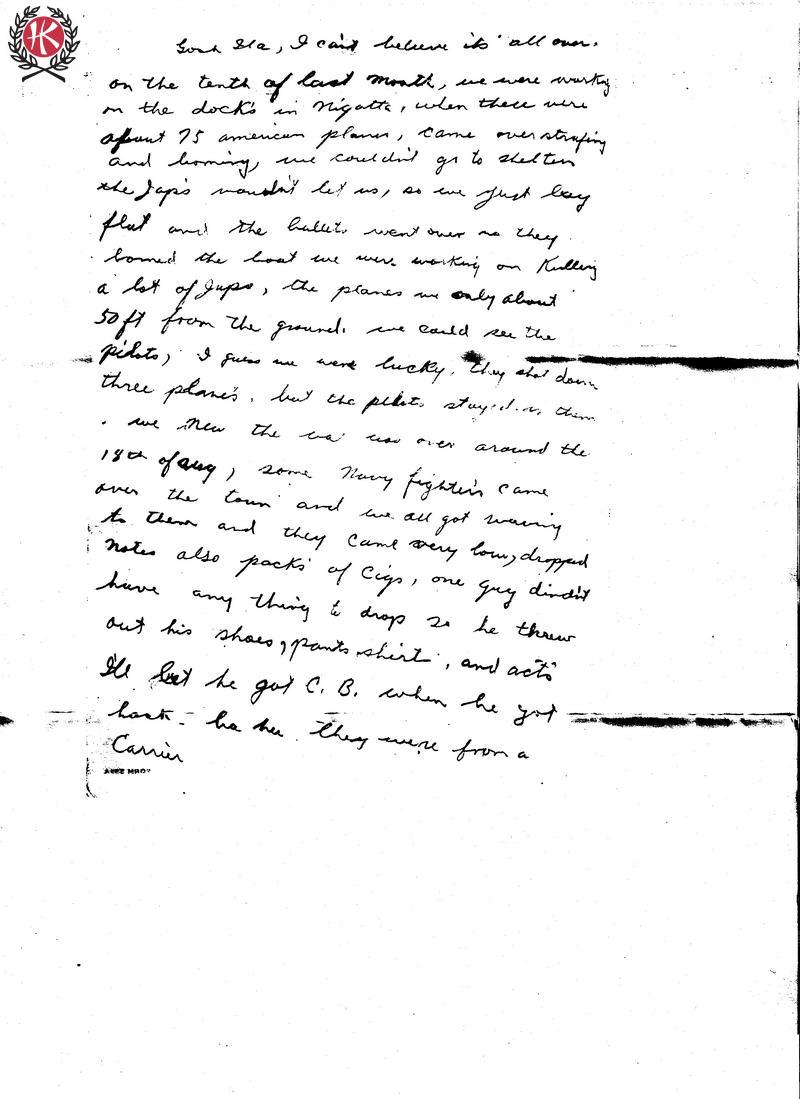 HK
Gosh Ila, I can't believe its all over.
on the tenth of last month, we were working
on the docks in Nigatta, when there were
about 75 american planes, came over strafing
and boming, we couldn't go to shelter
the Jap's wouldn't let us, so we just lay
flat and the bullets went over us they
bomed the boat we were working on Killing
a lot of Japs, the planes we only about
50 ft from the ground. we could see the
pilots, I guess we were lucky, they shot down
three plane's, but the pilots stayed in them
. we new the war was over around the
18th of aug, some Navy fighters came
over the town and we all got waving
to them and they came very low, dropped
notes also packs of Cigs, one guy dind't
have any thing to drop so he threw
out his shoes, pants shirt, and acts
I'll bet he got C. B. when he got
back - ha ha. they were from a
Carrier